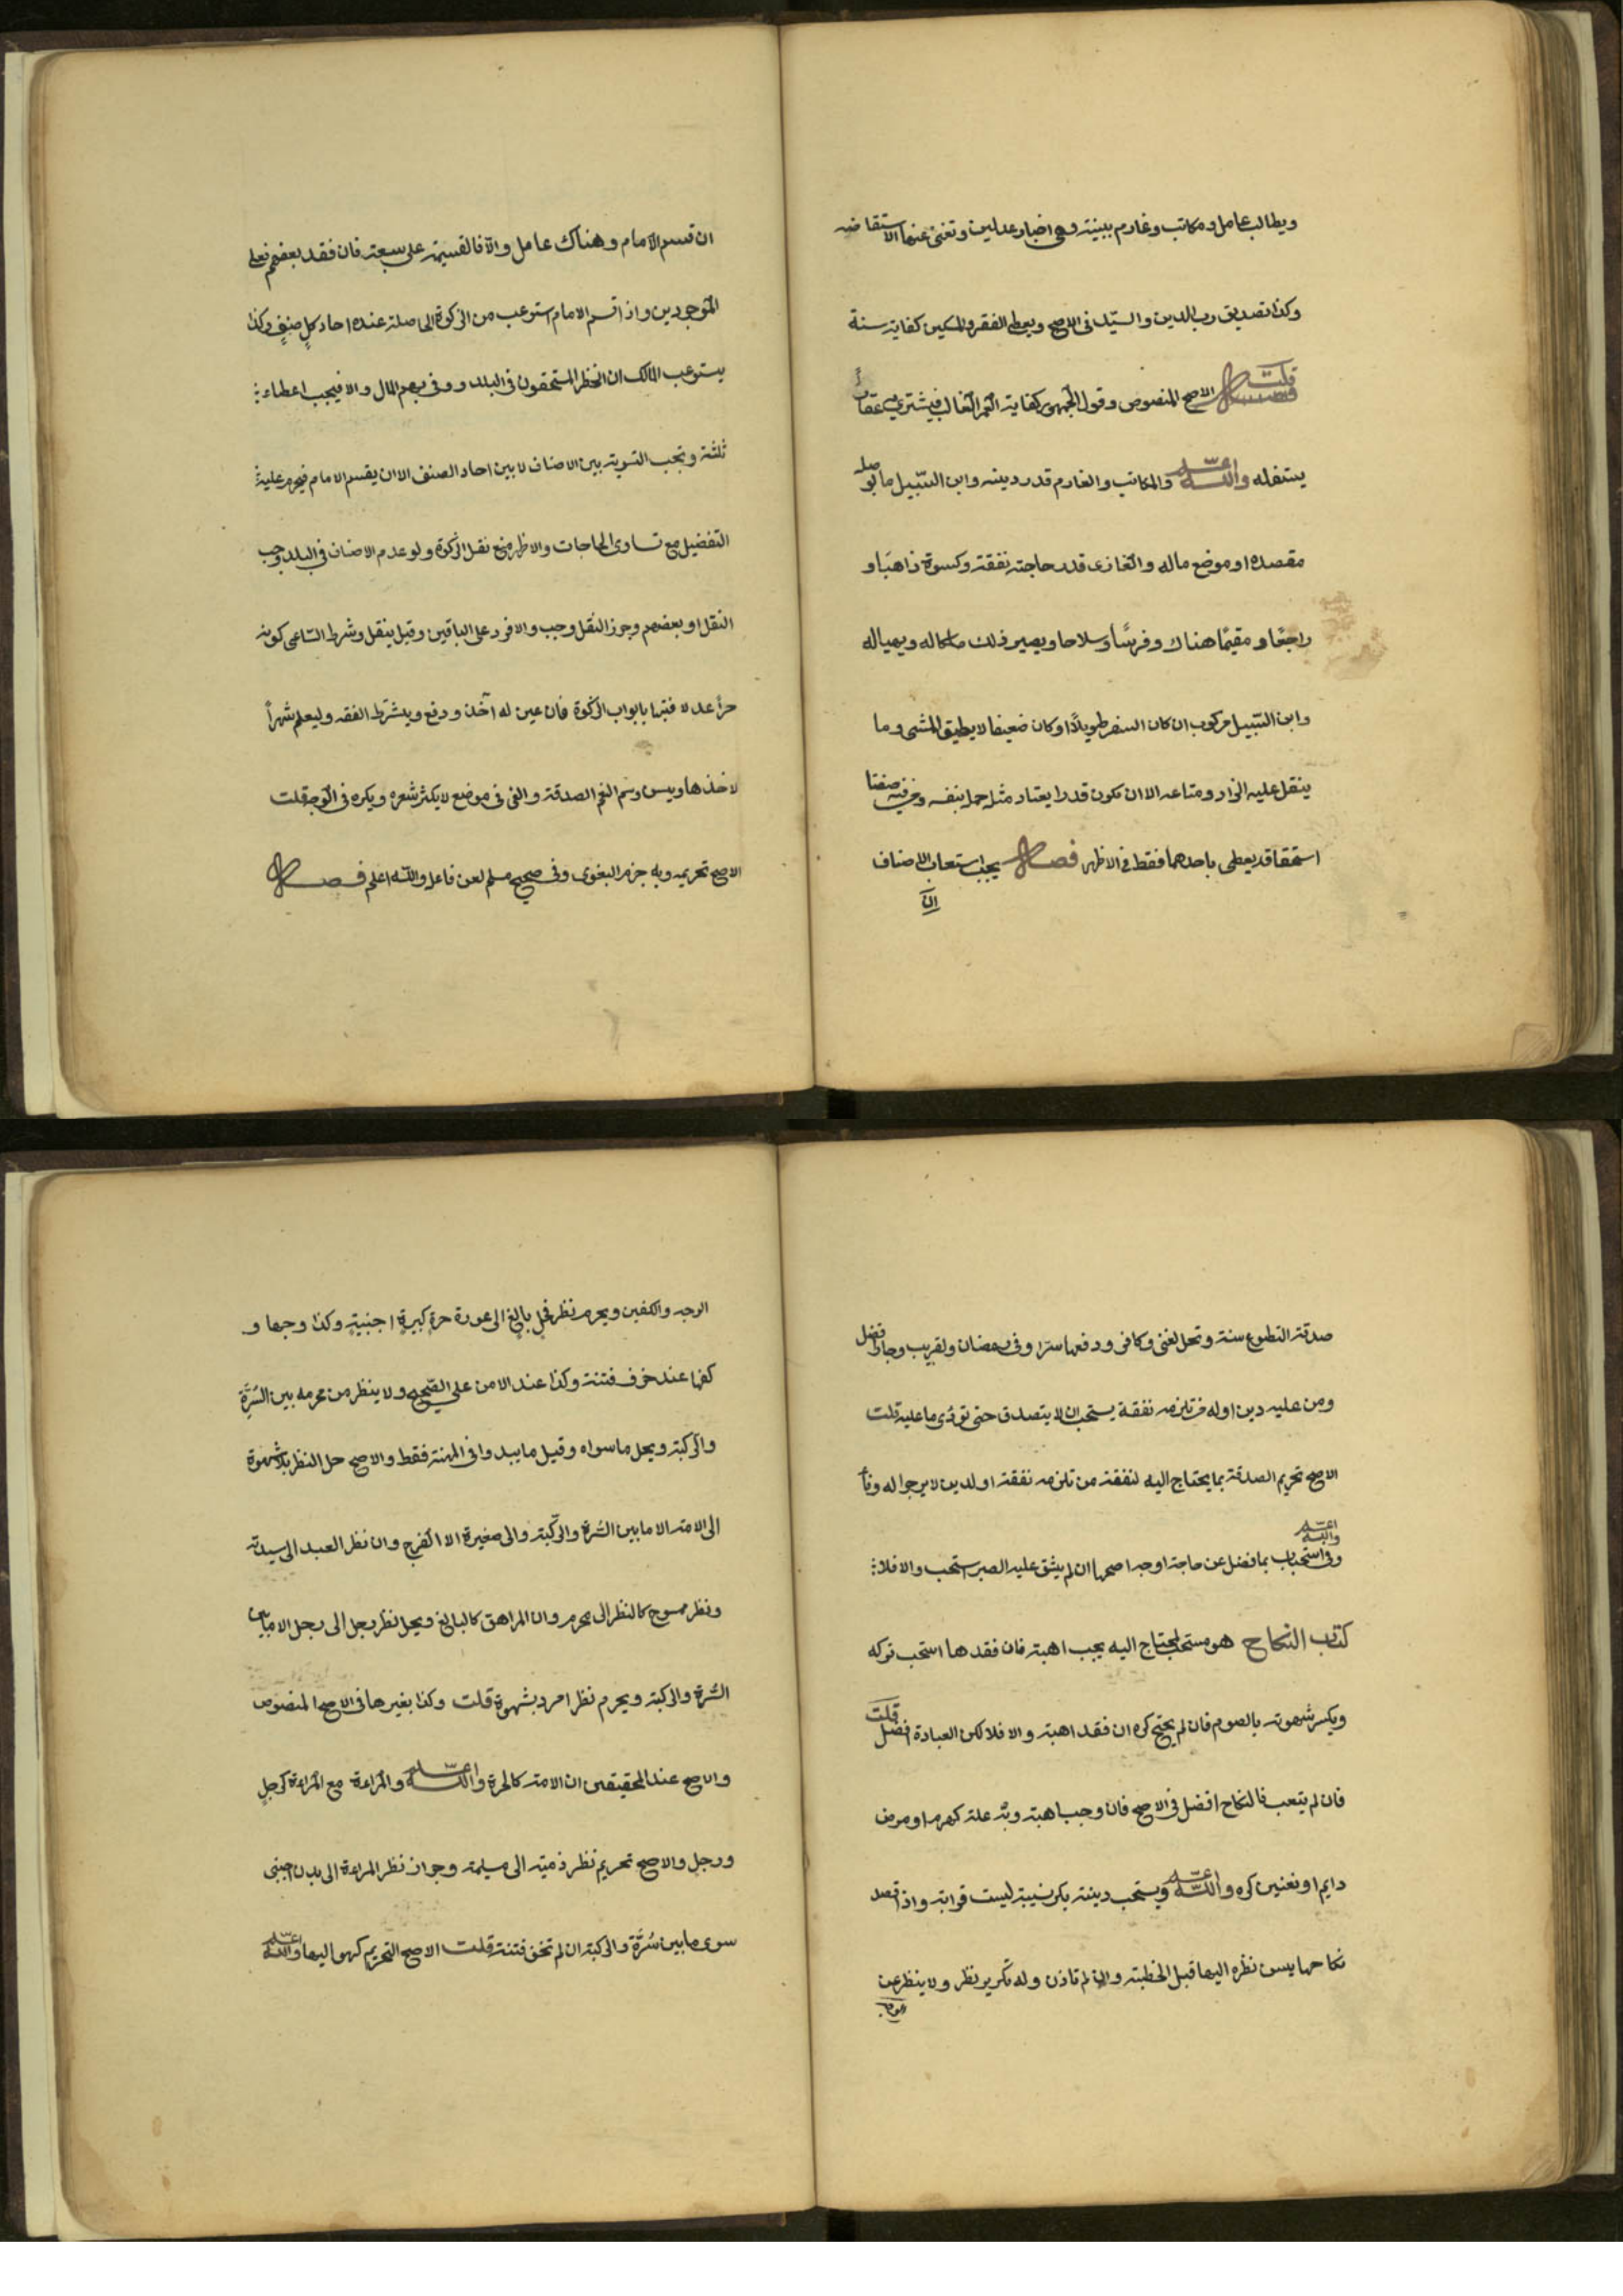 ويطالب عامل ومكاتب وغارم ببينة وهي اخبار عدلين وتغني عنها الاستقاضه
وكذا تصديق رب الدين والسيد في الاصح ويعطي الفقير والمسكين كفاية سنة
قلت الاصح المنصوص وقول الجمهور كفاية العمر الغالب فيشتري به عقارا
يستغله والله اعلم والمكاتب والغارم قدر دينه وابن السبيل ما يوصله
مقصده او موضع ماله والغازي قدر حاجته نفقة وكسوة ذاهبا و
راجعا ومقيما هناك وفرسا وسلاحا ويصير ذلك ملكا له ويهيا له
وابن السبيل مركوب ان كان السفر طويلا او كان ضعيفا لا يطيق المشي وما
ينقل عليه الزاد ومتاعه الا ان يكون قدرا يعتاد مثله حمله بنفسه ومن فيه صفتا
استحقاق يعطي باحدهما فقط في الاظهر فصل يجب استعاب الاصناف
ان
ان قسم الامام وهناك عامل والا فالقسمة على سبعة فان فقد بعضهم فعلى
الموجودين واذا قسم الامام استوعب من الزكوة الحاصلة عنده احاد كل صنف وكذا
يستوعب المالك ان انحظر المستحقون في البلد ووفى بهم المال والا فيجب اعطاء
ثلثة وتجب التسوية بين الاصناف لا بين احاد الصنف الا ان يقسم الامام فيحرم عليه
التفضيل مع تساوى الحاجات والاظهر منع نقل الزكوة ولو عدم الاصناف في البلد وجب
النقل او بعضهم وجوز النقل وجب والا فرد على الباقين وقيل ينقل وشرط الساعى كونه
حرا عدلا فقيها بابواب الزكوة فان عين له اخذ ودفع ويشترط الفقه وليعلم شهرا
لاخذها ويسن وسم النعم الصدقة والفى في موضع لا يكثر شعره ويكره في الوجه قلت
الاصح تحريمه وبه جزم البغوى وفي صحيح مسلم لعن فاعله والله اعلم فصل
صدقة التطوع سنة وتحل لغنى وكافر ودفعها سرا وفى رمضان ولقريب وجار افضل
ومن عليه دين او له من تلزمه نفقة يستحب ان لا يتصدق حتى تودى ما عليه قلت
الاصح تحريم الصدقة بما يحتاج اليه لنفقة من تلزمه نفقة او لدين لا يرجوا له وفأ
والله اعلم
وفى استحباب بما فضل عن حاجة اوجه اصحها ان لم يشق عليه الصبر استحب والا فلا
كتاب النكاح هو مستحب لمحتاج اليه يجب اهبته فان فقدها استحب تركه
ويكسر شهوته بالصوم فان لم يحتج كره ان فقد اهبة والا فلا لكن العبادة افضل قلت
فان لم يتعبد فالنكاح افضل في الاصح فان وجب اهبة وبه علة كهرم او مرض
دايم او تعنين كره والله اعلم ويستحب دينة بكر نسيبة ليست قرابة واذا قصد
نكاحها يسن نظره اليها قبل الخطبة وان لم تاذن وله تكرير نظر ولا ينظر من
الوجه والكفين ويحرم نظر فحل بالغ الى عورة حرة كبيرة اجنبية وكذا وجهها و
كفها عند خوف فتنة وكذا عند الامن على الصحيح ولا ينظر من محرمه بين السرة
والركبة ويحل ما سواه وقيل ما يبدوا في المهنة فقط والاصح حل النظر بلا شهوة
الى الامة الا ما بين السرة والركبة والى صغيرة الا الفرج وان نظر العبد الى سيدته
ونظر ممسوح كالنظر الى محرم وان المراهق كالبالغ ويحل نظر رجل الى رجل الا ما بين
السرة والركبة ويحرم نظر امرد بشهوة قلت وكذا بغيرها في الاصح المنصوص
والاصح عند المحققين ان الامة كالحرة والله اعلم والمراءة مع المراءة كرجل
ورجل والاصح تحريم نظر ذمية الى مسلمة وجواز نظر المراءة الى بدن اجنبى
سوى ما بين سرة والركبة ان لم تخف فتنة قلت الاصح التحريم كهو اليها والله اعلم